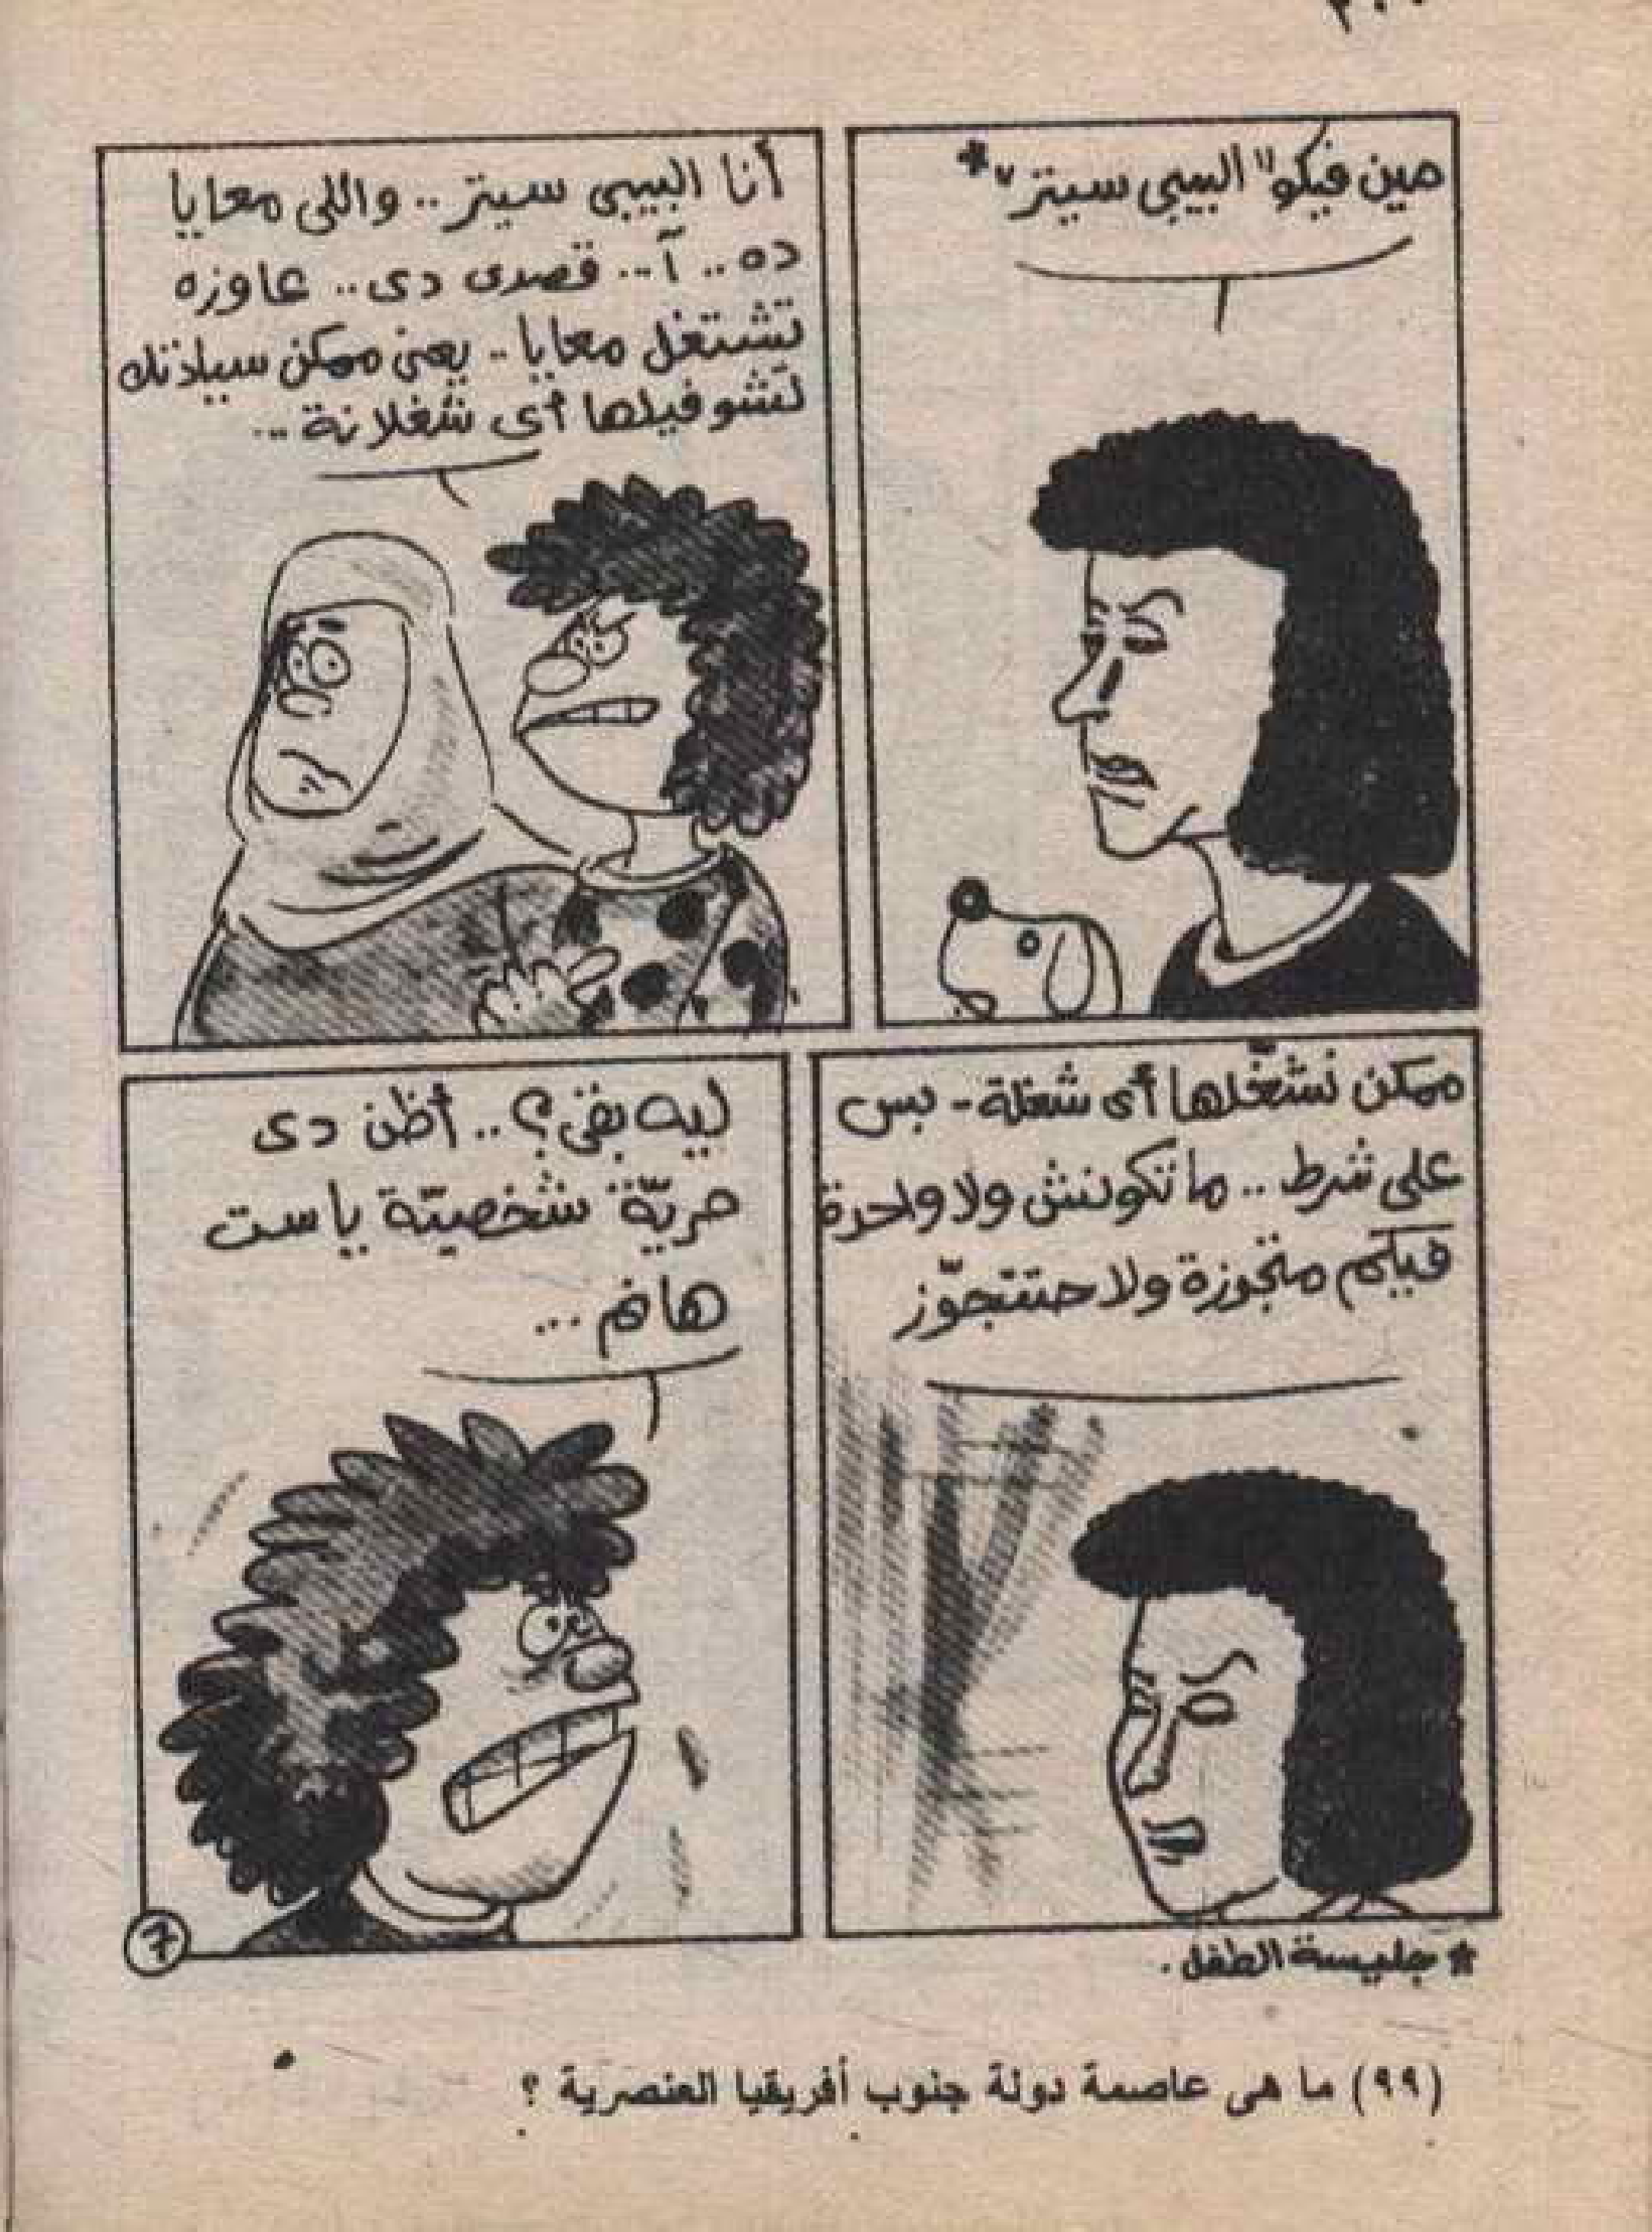 مين فيكو "البيبى سيتر"*
أنا البيبى سيتر.. واللى معايا
ده.. آ... قصدى دى.. عاوزه
تشتغل معايا.. يعنى ممكن سيادتك
تشوفيلها أى شغلانة...
ممكن نشغّلها أى شغلة - بس
على شرط.. ماتكونش ولا واحدة
فيكم متجوزة ولا حتتجوّز
ليه بقى؟.. أظن دى
حريّة شخصيّة ياست
هانم...
7
* جليسة الطفل.
(٩٩) ما هى عاصمة دولة جنوب أفريقيا العنصرية ؟